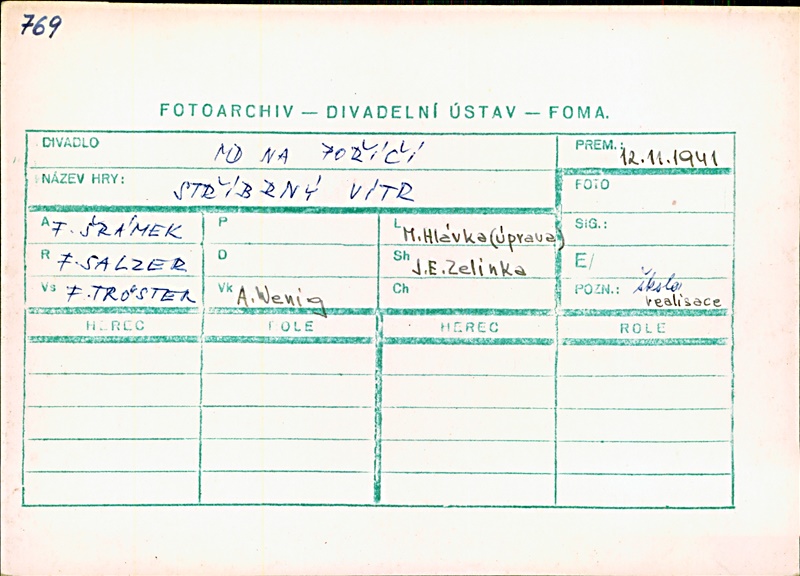 769
FOTOARCHIV — DIVADELNÍ ÚSTAV — FOMA.
DIVADLO MD NA POŘÍČÍ PREM.: 12.11.1941
NÁZEV HRY: STŘÍBRNÝ VÍTR FOTO
A F. ŠRÁMEK P L M.Hlávka (úprava) SIG.:
R F. SALZER D Sh J.E.Zelinka E/
Vs F. TRÖSTER Vk A.Wenig Ch POZN.: škola realisace
HEREC ROLE HEREC ROLE